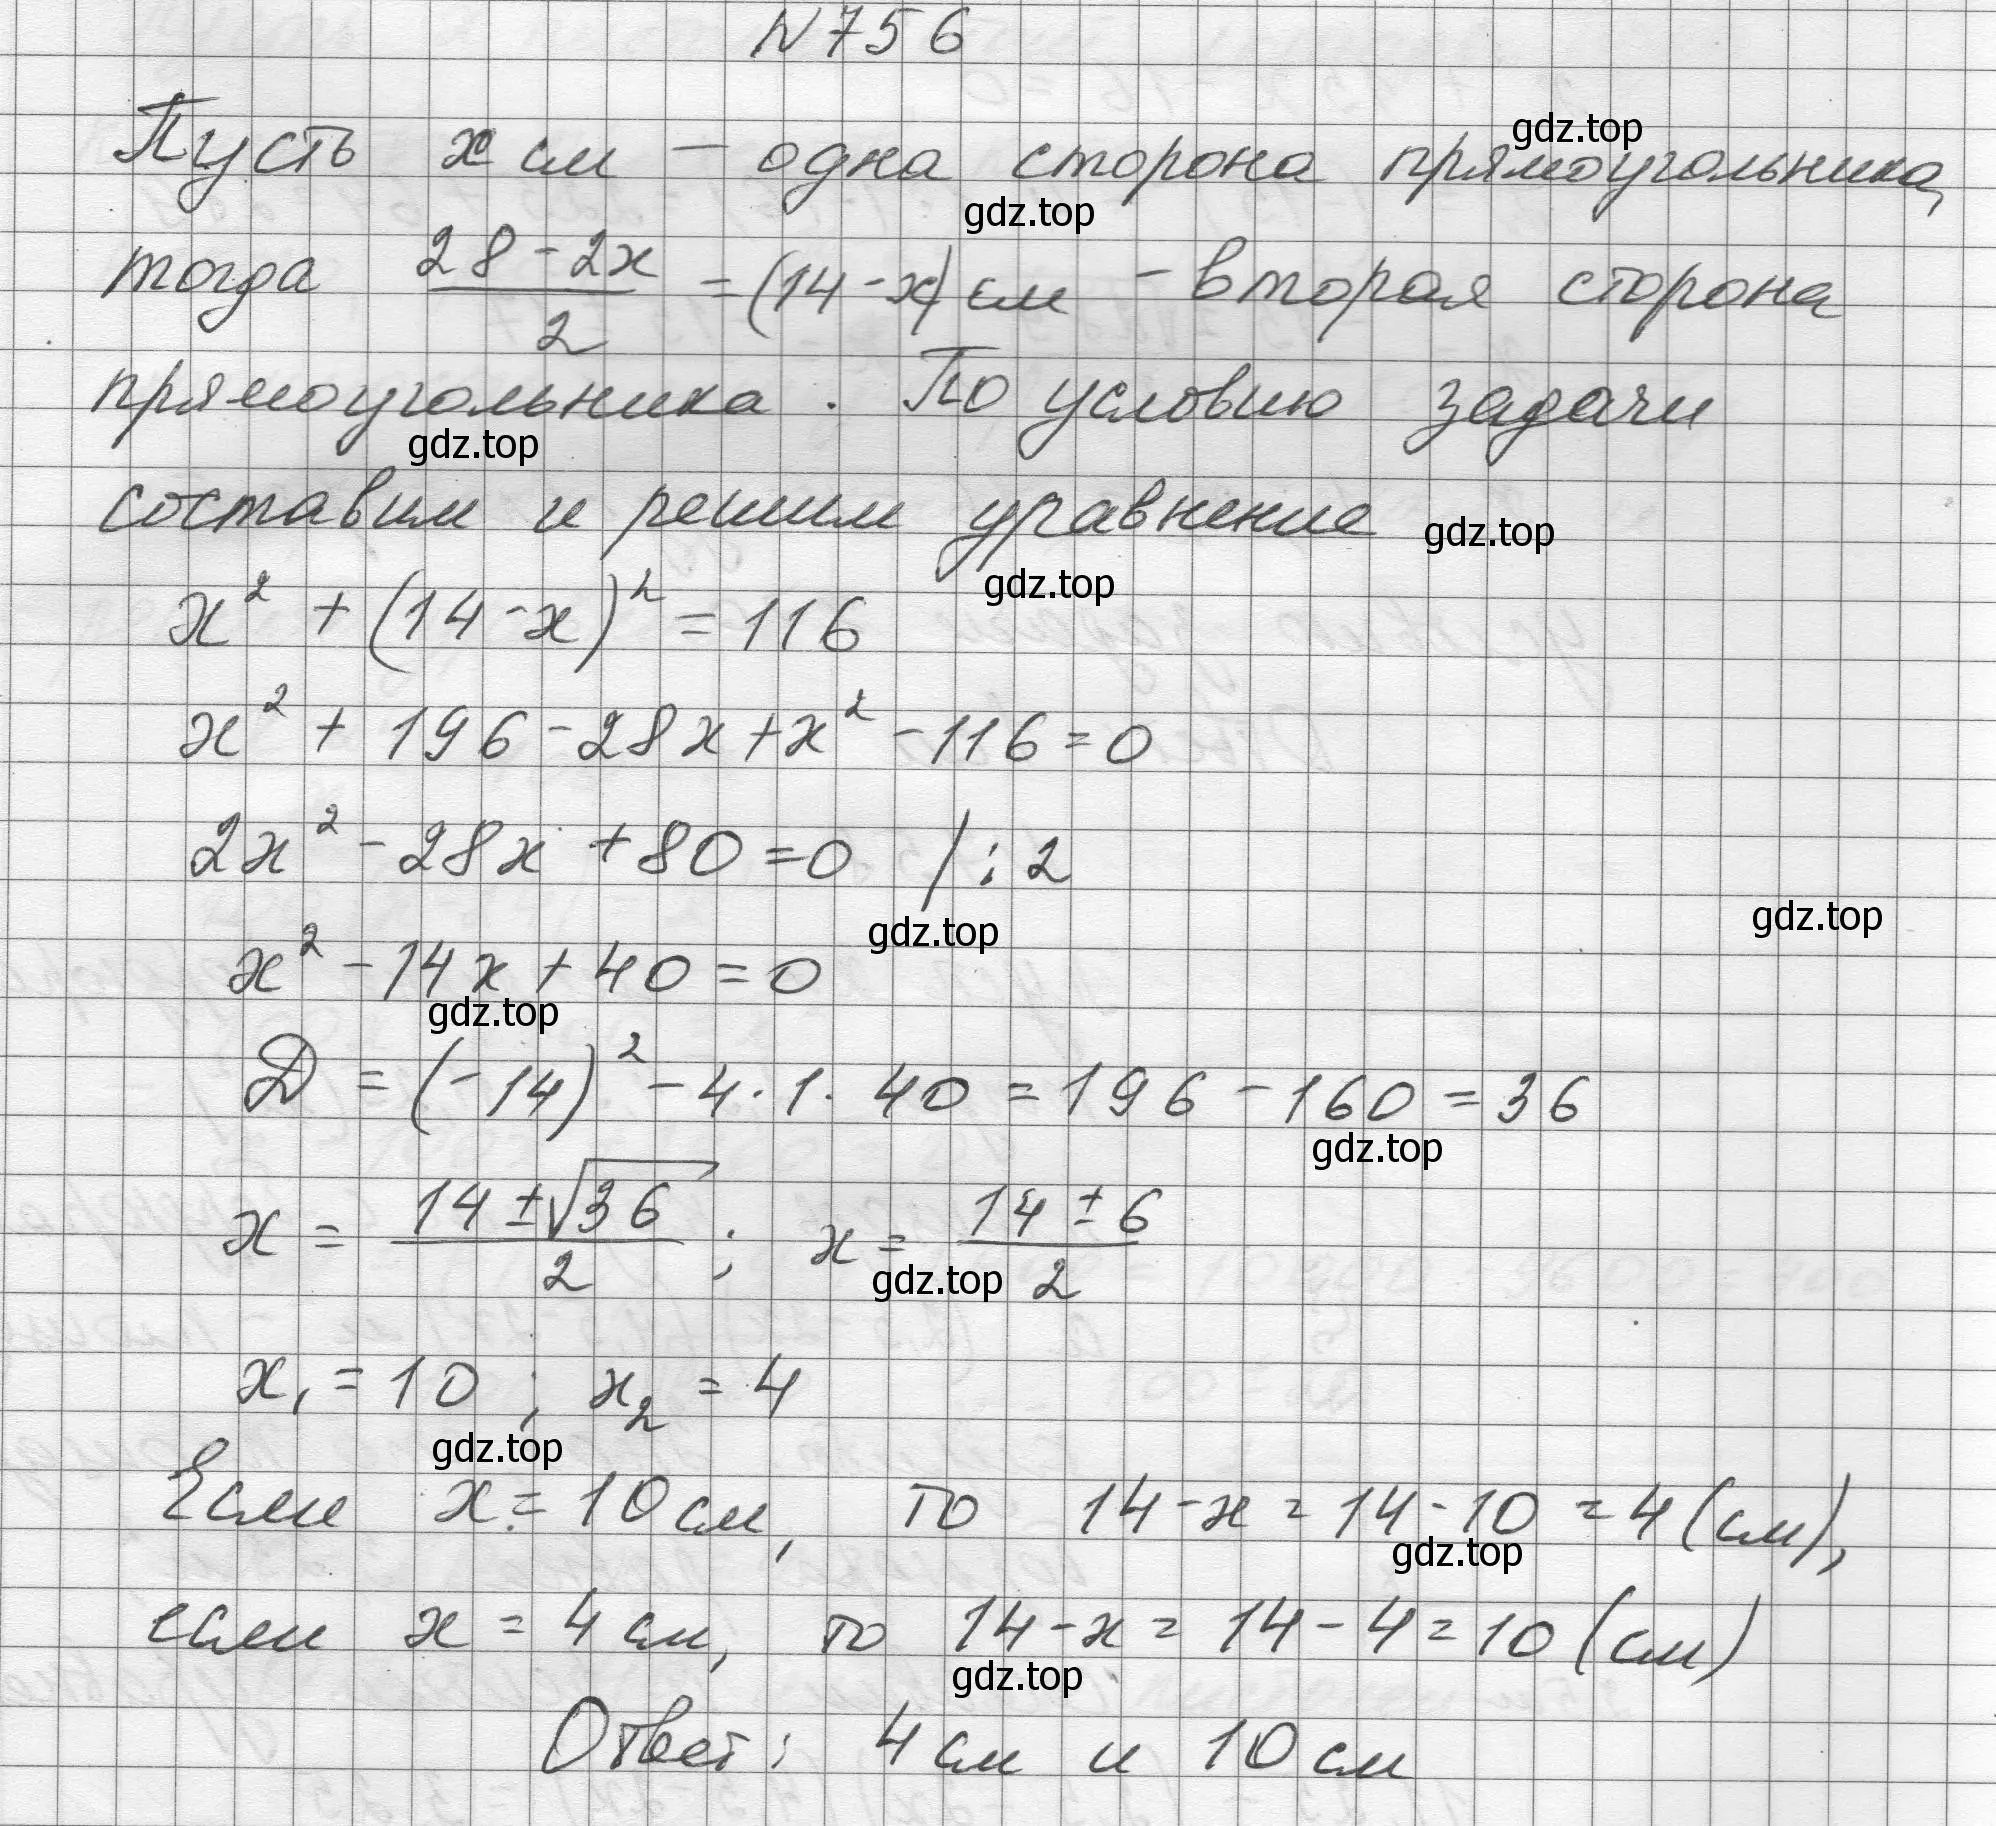 N756
Пусть x см – одна сторона прямоугольника,
тогда (28-2x)/2 = (14-x) см – вторая сторона
прямоугольника. По условию задачи
составим и решим уравнение
x² + (14-x)² = 116
x² + 196 - 28x + x² - 116 = 0
2x² - 28x + 80 = 0 /:2
x² - 14x + 40 = 0
D = (-14)² - 4·1·40 = 196 - 160 = 36
x = (14 ± √36)/2 ; x = (14 ± 6)/2
x₁ = 10 ; x₂ = 4
Если x = 10 см, то 14-x = 14-10 = 4 (см),
если x = 4 см, то 14-x = 14-4 = 10 (см)
Ответ: 4 см и 10 см
gdz.top
gdz.top
gdz.top
gdz.top
gdz.top
gdz.top
gdz.top
gdz.top
gdz.top
gdz.top
gdz.top
gdz.top
gdz.top